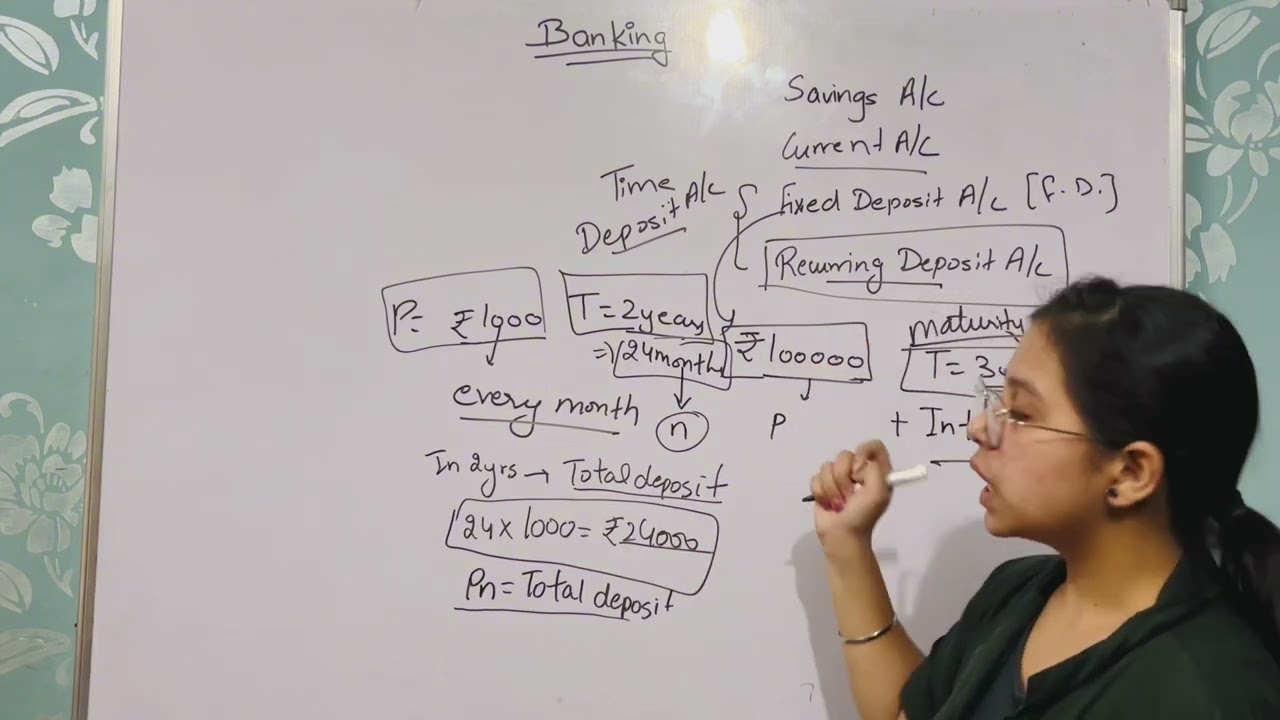 Banking
Savings A/c
Current A/c
Time Deposit A/c
Fixed Deposit A/c [F.D.]
Recurring Deposit A/c
P= ₹1000
every month
T=2years
=> 24months
n
₹100000
P
maturity
T= 3
+ Int
In 2yrs → Total deposit
24 x 1000 = ₹24000
Pn = Total deposit